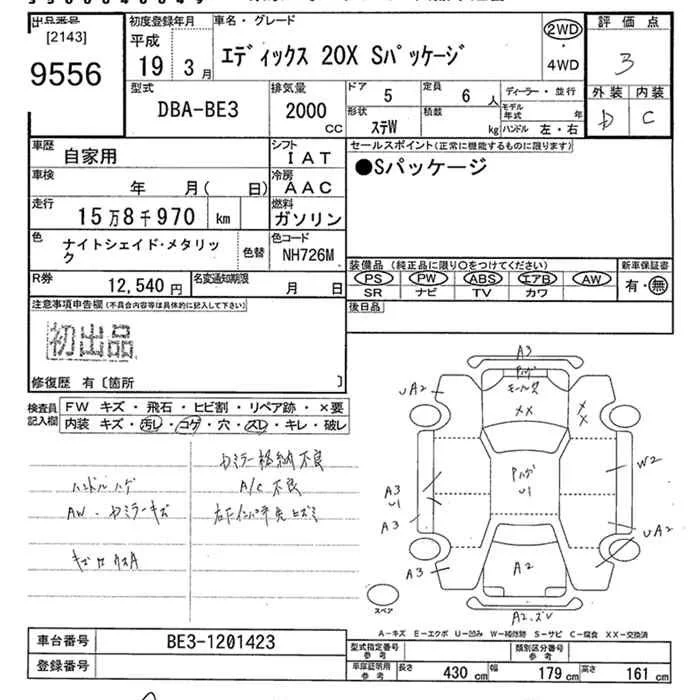 出品番号
[2143]
9556
初度登録年月
平成
19 3月
車名・グレード
エディックス 20X Sパッケージ
2WD
・
4WD
評価点
3
型式
DBA-BE3
排気量
2000
CC
ドア
5
定員
6 人
ディーラー・並行
形状
ステW
積数
kg
モデル年式 年
ハンドル 左・右
外装 内装
D C
車歴
自家用
シフト
IAT
セールスポイント(正常に機能するものに限ります)
●Sパッケージ
車検
年 月( 日)
冷房
AAC
走行
15万8千970 km
燃料
ガソリン
色
ナイトシェイド・メタリック
色替
色コード
NH726M
R券
12,540円
名変通知期限
月 日
装備品 (純正品に限り○をつけてください)
新車保証書
PS PW ABS エアB AW
有・無
SR ナビ TV カワ
後日品
注意事項申告欄(不具合内容等は具体的に記入して下さい)
初出品
修復歴 有〔箇所 〕
検査員記入欄
FW キズ・飛石・ヒビ割・リペア跡・×要
内装 キズ・汚レ・コゲ・穴・スレ・キレ・破レ
カミラー格納不良
ハンドルハゲ
A/C 不良
AW・カミラーキズ
A3
ハゲ
UA2
XX
XX
ハゲ
U1
W2
A3
U1
A3
UA2
A3
A2
A2.ズレ
スペア
A-キズ E-エクボ U-凹み W-補修跡 S-サビ C-腐食 XX-交換済
車台番号
BE3-1201423
登録番号
型式指定番号
参考
類別区分番号
参考
車庫証明用
参考
長さ 430 cm
幅 179 cm
高さ 161 cm